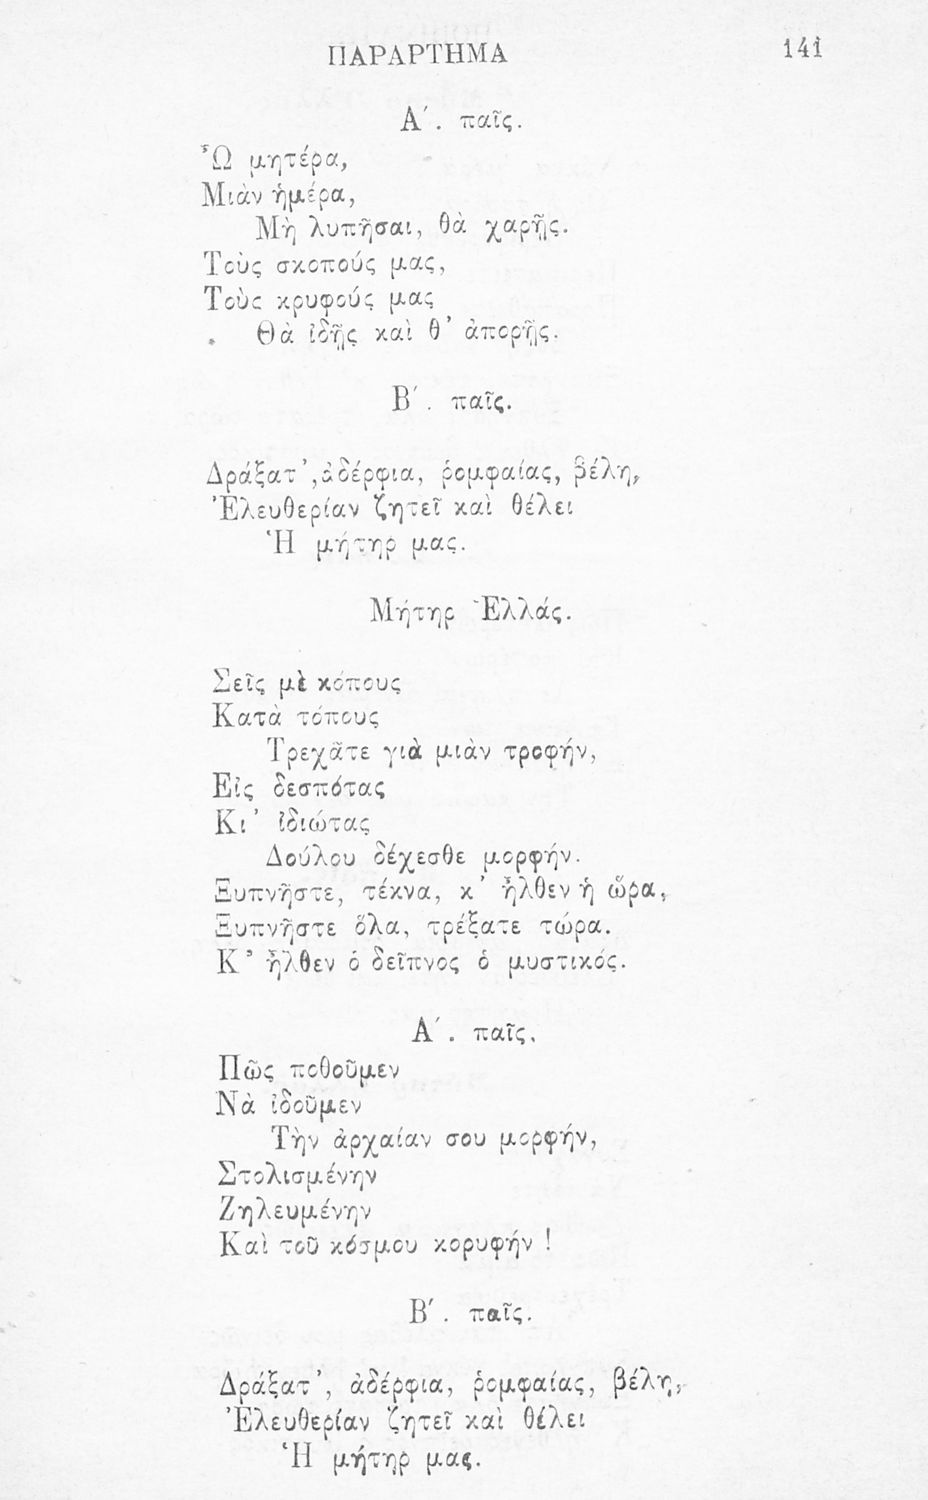 ΠΑΡΑΡΤΗΜΑ 141
Α΄. παῖς.
Ὦ μητέρα,
Μιὰν ἡμέρα,
Μὴ λυπῆσαι, θὰ χαρῇς.
Τοὺς σκοπούς μας,
Τοὺς κρυφούς μας
Θὰ ἰδῇς καὶ θ’ ἀπορῇς.
Β΄. παῖς.
Δράξατ’, ἀδέρφια, ῥομφαίας, βέλη,
Ἐλευθερίαν ζητεῖ καὶ θέλει
Ἡ μήτηρ μας.
Μήτηρ Ἑλλάς.
Σεῖς μὲ κόπους
Κατὰ τόπους
Τρεχᾶτε γιὰ μιὰν τροφήν,
Εἰς δεσπότας
Κι’ ἰδιώτας
Δούλου δέχεσθε μορφήν.
Ξυπνῆστε, τέκνα, κ’ ἦλθεν ἡ ὥρα,
Ξυπνῆστε ὅλα, τρέξατε τώρα.
Κ’ ἦλθεν ὁ δεῖπνος ὁ μυστικός.
Α΄. παῖς.
Πῶς ποθοῦμεν
Νὰ ἰδοῦμεν
Τὴν ἀρχαίαν σου μορφήν,
Στολισμένην
Ζηλευμένην
Καὶ τοῦ κόσμου κορυφήν !
Β΄. παῖς.
Δράξατ’, ἀδέρφια, ῥομφαίας, βέλη,
Ἐλευθερίαν ζητεῖ καὶ θέλει
Ἡ μήτηρ μας.